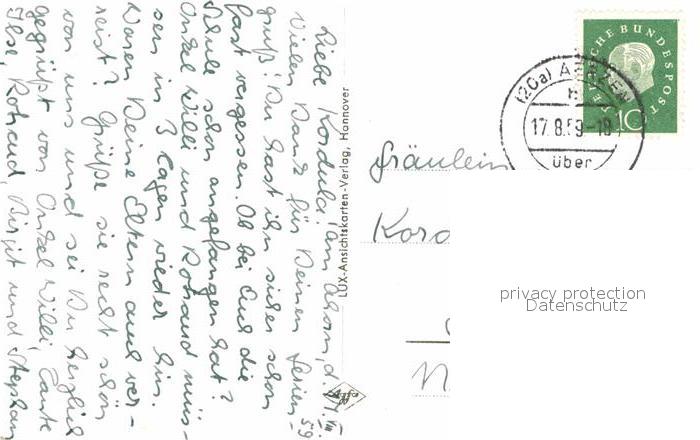 Liebe Kordula!
Vielen Dank für Deinen Ferien-
gruß! Du hast ihn sicher schon
fast vergessen. Ob bei Euch die
Schule schon angefangen hat?
Onkel Willi und Rotraud müs-
sen in 3 Tagen wieder hin.
Waren Deine Eltern auch ver-
reist? Grüße sie recht schön
von uns und sei Du herzlich
gegrüßt von Onkel Willi, Tante
Ilse, Rotraud, Birgit und Stephan
LUX-Ansichtskarten-Verlag, Hannover
Agfa
DEUTSCHE BUNDESPOST
10
(20a) AERZEN
17.8.59-18
über
Fräulein
Kord
privacy protection
Datenschutz